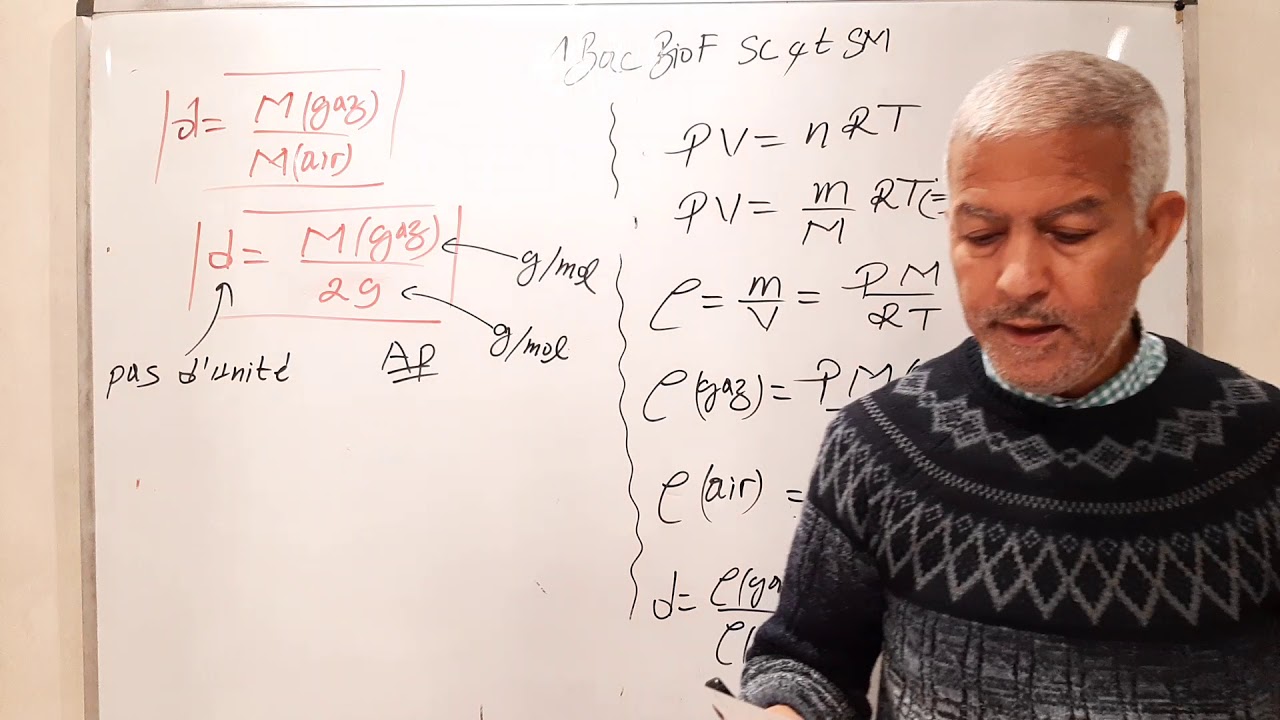 1Bac BioF SC et SM
d = M(gaz) / M(air)
d = M(gaz) / 29
g/mol
g/mol
pas d'unité
AP
PV = nRT
PV = m/M RT (=
ρ = m/V = PM/RT
ρ(gaz) = PM
ρ(air) =
d = ρ(gaz / ρ(